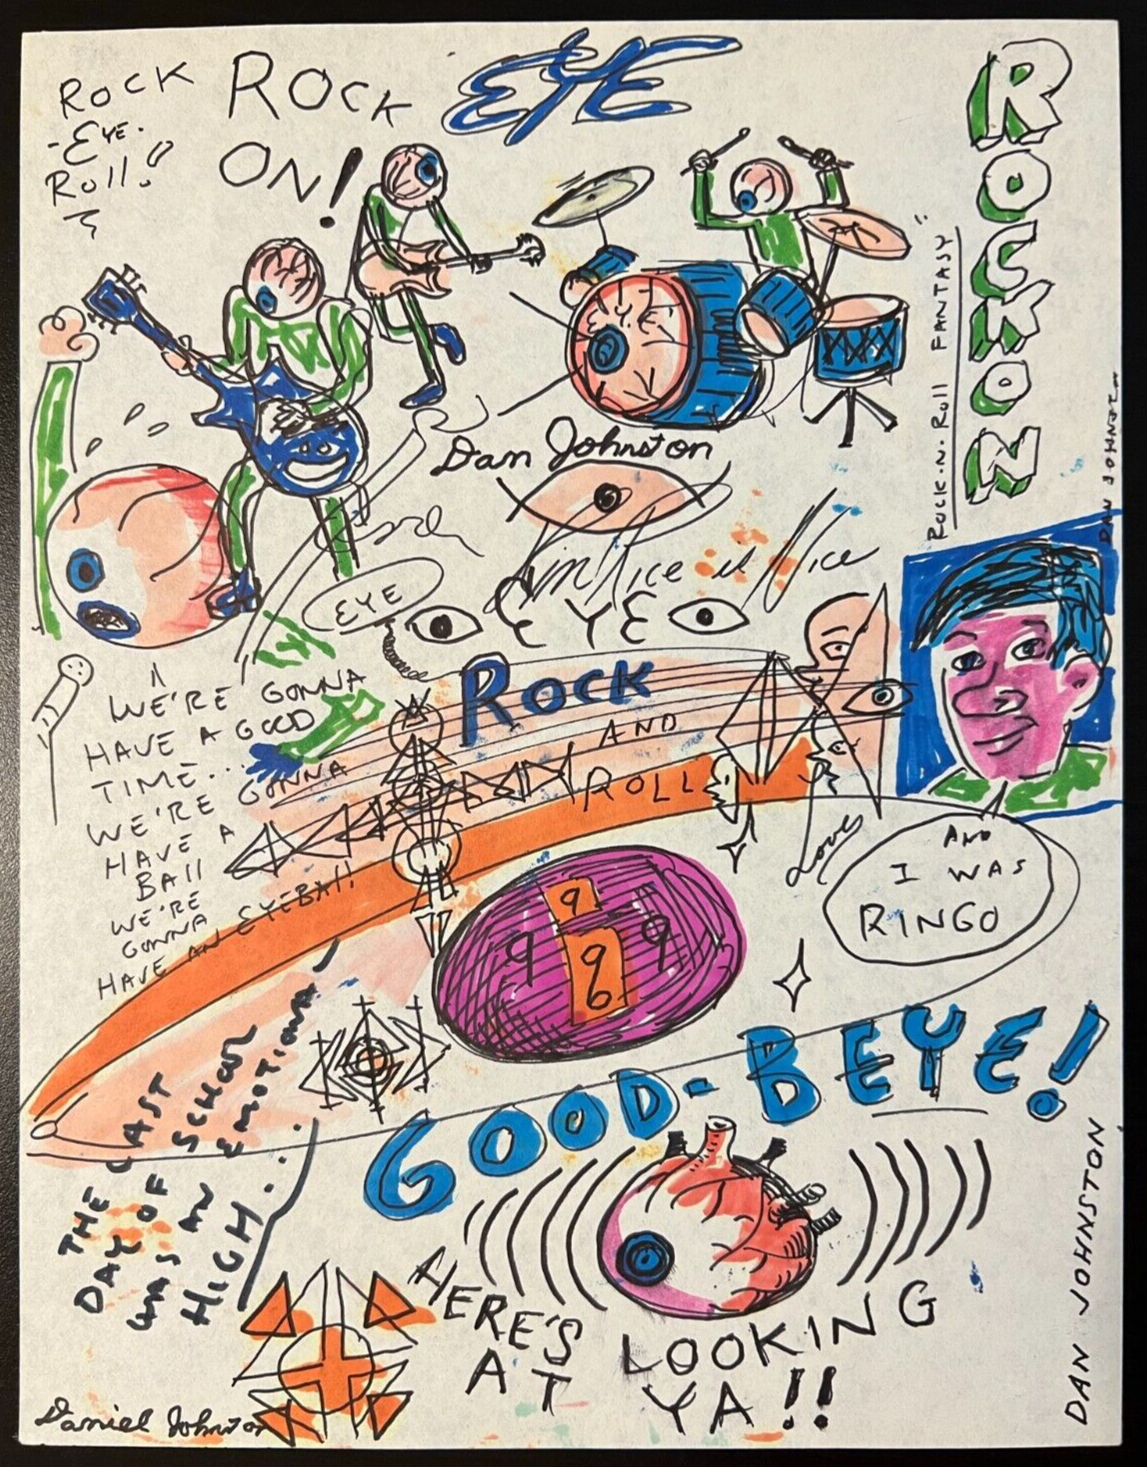 ROCK
-EYE-
ROLL!
ROCK EYE
ON!
ROCK ON
ROCK-N-ROLL FANTASY
DAN JOHNSTON
Dan Johnston
is Nice
EYE
EYE
WE'RE GONNA
HAVE A GOOD
TIME...
WE'RE GONNA
HAVE A
BALL
WE'RE
GONNA
HAVE AN EYEBALL
ROCK
AND
ROLL
Love
AND
I WAS
RINGO
9
9 9 9
6
GOOD-BEYE!
THE LAST
DAY OF SCHOOL
WAS AN EMOTIONAL
HIGH...
HERE'S LOOKING
AT YA!!
DAN JOHNSTON
Daniel Johnston